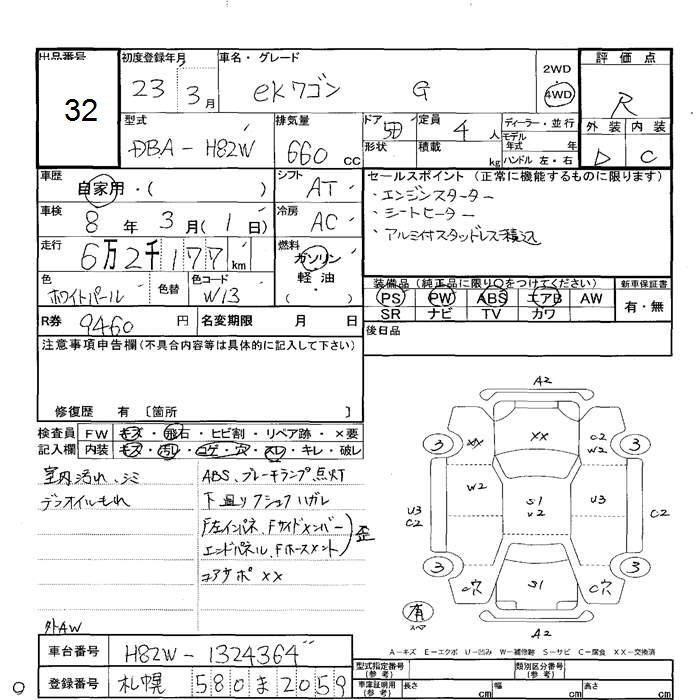 出品番号 初度登録年月 車名・グレード 2WD 評価点
32 23 3月 ekワゴン G 4WD R
型式 排気量 ドア 5D 定員 4人 ディーラー・並行 外装 内装
DBA-H82W 660cc 形状 積載 kg モデル年式 年式 ハンドル 左・右 D C
車歴 自家用・( ) シフト AT セールスポイント (正常に機能するものに限ります)
・エンジンスターター
車検 8年 3月 (1日) 冷房 AC ・シートヒーター
・アルミ付スタッドレス積込
走行 6万2千177km 燃料 ガソリン 軽油 ( )
色 ホワイトパール 色替 色コード W13 装備品 (純正品に限り○をつけてください) 新車保証書
PS PW ABS エアB AW 有・無
R券 9460円 名変期限 月 日 SR ナビ TV カワ
注意事項申告欄(不具合内容等は具体的に記入して下さい) 後日品
修復歴 有 〔箇所 〕
検査員 FW キズ・飛石・ヒビ割・リペア跡・×要
記入欄 内装 キズ・汚レ・コゲ・穴・スレ・キレ・破レ
室内汚れ、シミ ABS、ブレーキランプ点灯
デフオイルもれ 下廻りフシュクハガレ
F左インパネ、Fサイドメンバー
エンドパネル、Fホースメント 歪
コアサポ ××
外AW
A2
3 ×× ×× C2 W2 3
W2
U3 C2 S1 U2 U3 C2
3 3
C穴 S1 C穴
有 スペア
A2
A-キズ E-エクボ U-凹み W-補修跡 S-サビ C-腐食 XX-交換済
車台番号 H82W-1324364 型式指定番号(参考) 類別区分番号(参考)
登録番号 札幌 580ま2059 車庫証明用(参考) 長さ cm 幅 cm 高さ cm